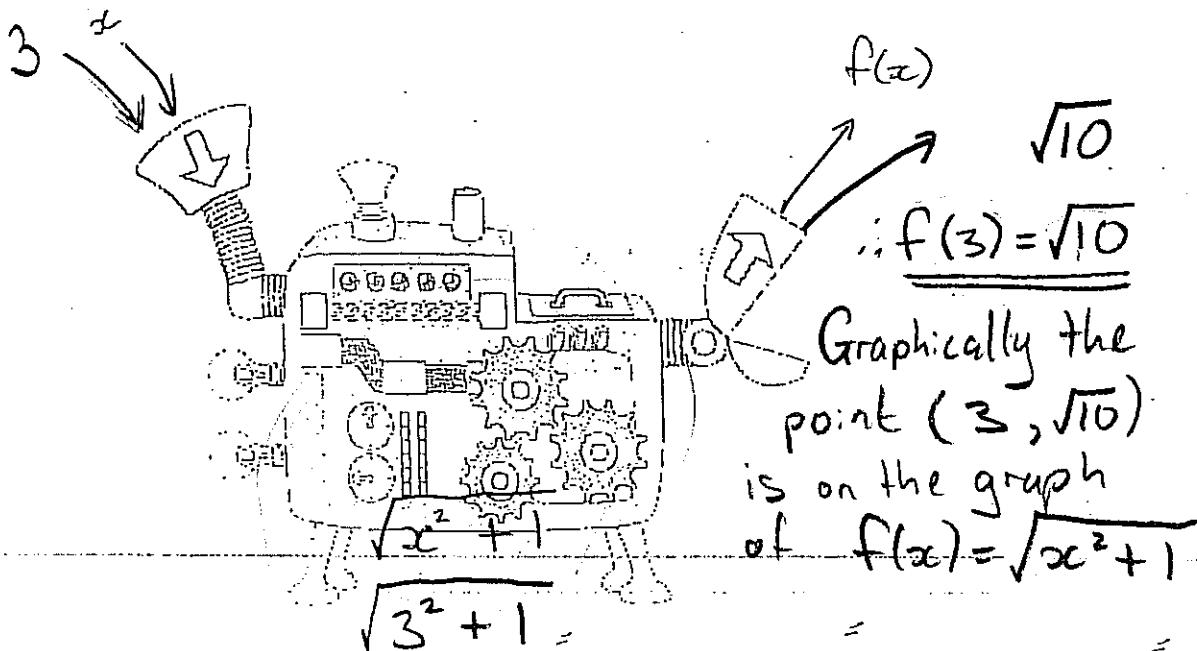 3 x
f(x)
√10
∴ f(3) = √10
Graphically the
point (3, √10)
is on the graph
of f(x) = √(x² + 1)
√(x² + 1)
√(3² + 1) =
=
=